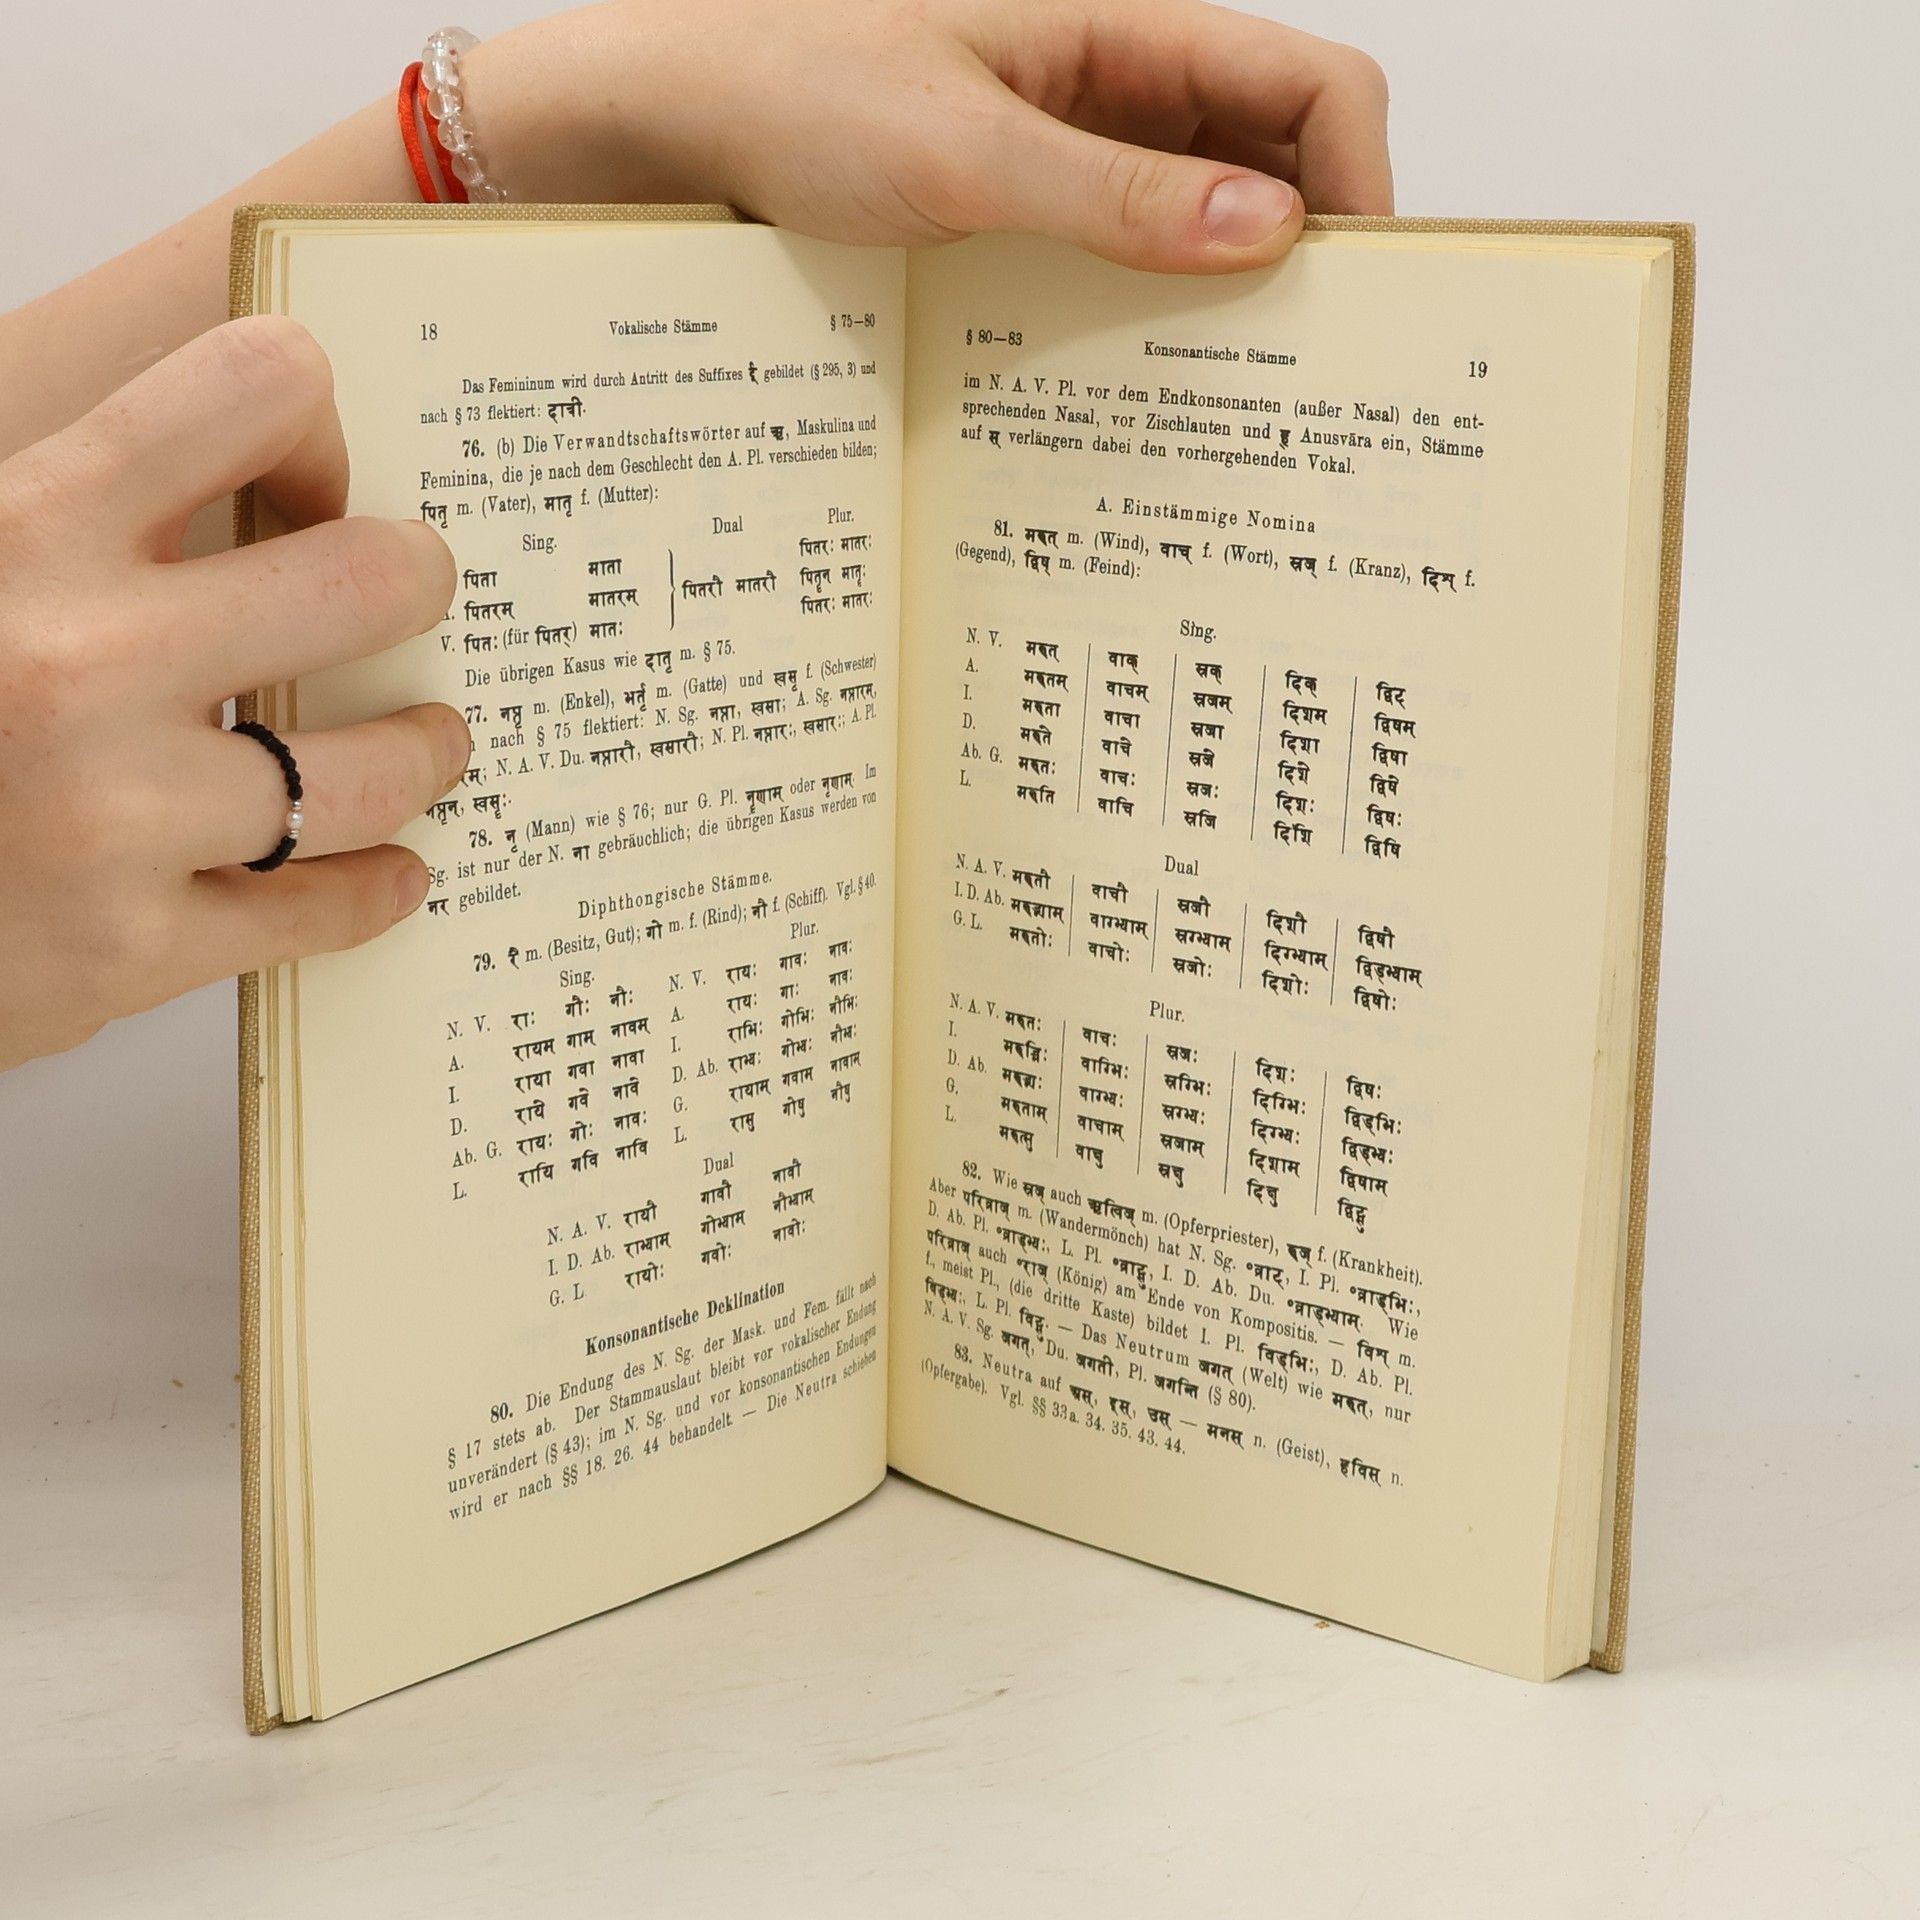 18 Vokalische Stämme § 75—80
Das Femininum wird durch Antritt des Suffixes ई gebildet (§ 295, 3) und
nach § 73 flektiert: दात्री.
76. (b) Die Verwandtschaftswörter auf ऋ, Maskulina und
Feminina, die je nach dem Geschlecht den A. Pl. verschieden bilden;
पितृ m. (Vater), मातृ f. (Mutter):
Sing. Dual Plur.
पिता माता पितरः मातरः
पितरम् मातरम् पितरौ मातरौ पितॄन् मातॄः
V. पितः (für पितर्) मातः पितरः मातरः
Die übrigen Kasus wie दातृ m. § 75.
77. नप्तृ m. (Enkel), भर्तृ m. (Gatte) und स्वसृ f. (Schwester)
nach § 75 flektiert: N. Sg. नप्ता, स्वसा; A. Sg. नप्तारम्,
रम्; N. A. V. Du. नप्तारौ, स्वसारौ; N. Pl. नप्तारः, स्वसारः; A. Pl.
नप्तॄन्, स्वसॄः.
78. नृ (Mann) wie § 76; nur G. Pl. नॄणाम् oder नृणाम्. Im
Sg. ist nur der N. ना gebräuchlich; die übrigen Kasus werden von
नर gebildet.
Diphthongische Stämme.
79. रै m. (Besitz, Gut); गो m. f. (Rind); नौ f. (Schiff). Vgl. § 40.
Sing. Plur.
N. V. राः गौः नौः N. V. रायः गावः नावः
A. रायम् गाम् नावम् A. रायः गाः नावः
I. राया गवा नावा I. राभिः गोभिः नौभिः
D. राये गवे नावे D. Ab. राभ्यः गोभ्यः नौभ्यः
Ab. G. रायः गोः नावः G. रायाम् गवाम् नावाम्
L. रायि गवि नावि L. रासु गोषु नौषु
Dual
N. A. V. रायौ गावौ नावौ
I. D. Ab. राभ्याम् गोभ्याम् नौभ्याम्
G. L रायोः गवोः नावोः
Konsonantische Deklination
80. Die Endung des N. Sg. der Mask. und Fem. fällt nach
§ 17 stets ab. Der Stammauslaut bleibt vor vokalischer Endung
unverändert (§ 43); im N. Sg. und vor konsonantischen Endungen
wird er nach §§ 18. 26. 44 behandelt. — Die Neutra schieben
§ 80—83 Konsonantische Stämme 19
im N. A. V. Pl. vor dem Endkonsonanten (außer Nasal) den ent-
sprechenden Nasal, vor Zischlauten und ह् Anusvāra ein, Stämme
auf स् verlängern dabei den vorhergehenden Vokal.
A. Einstämmige Nomina
81. मरुत् m. (Wind), वाच् f. (Wort), स्रज् f. (Kranz), दिश् f.
(Gegend), द्विष् m. (Feind):
Sing.
N. V. मरुत् वाक् स्रक् दिक् द्विट्
A. मरुतम् वाचम् स्रजम् दिशम् द्विषम्
I. मरुता वाचा स्रजा दिशा द्विषा
D. मरुते वाचे स्रजे दिशे द्विषे
Ab. G. मरुतः वाचः स्रजः दिशः द्विषः
L. मरुति वाचि स्रजि दिशि द्विषि
Dual
N. A. V. मरुतौ वाचौ स्रजौ दिशौ द्विषौ
I. D. Ab. मरुद्भ्याम् वाग्भ्याम् स्रग्भ्याम् दिग्भ्याम् द्विड्भ्याम्
G. L. मरुतोः वाचोः स्रजोः दिशोः द्विषोः
Plur.
N. A. V. मरुतः वाचः स्रजः दिशः द्विषः
I. मरुद्भिः वाग्भिः स्रग्भिः दिग्भिः द्विड्भिः
D. Ab. मरुद्भ्यः वाग्भ्यः स्रग्भ्यः दिग्भ्यः द्विड्भ्यः
G. मरुताम् वाचाम् स्रजाम् दिशाम् द्विषाम्
L. मरुत्सु वाक्षु स्रक्षु दिक्षु द्विट्सु
82. Wie स्रज् auch ऋत्विज् m. (Opferpriester), रुज् f. (Krankheit).
Aber परिव्राज् m. (Wandermönch) hat N. Sg. °व्राट्, I. Pl. °व्राड्भिः,
D. Ab. Pl. °व्राड्भ्यः, L. Pl. °व्राट्सु, I. D. Ab. Du. °व्राड्भ्याम्. Wie
परिव्राज् auch °राज् (König) am Ende von Kompositis. — विश् m.
f., meist Pl., (die dritte Kaste) bildet I. Pl. विड्भिः, D. Ab. Pl.
विड्भ्यः, L. Pl. विट्सु. — Das Neutrum जगत् (Welt) wie मरुत्, nur
N. A. V. Sg. जगत्, Du. जगती, Pl. जगन्ति (§ 80).
83. Neutra auf अस्, इस्, उस् — मनस् n. (Geist), हविस् n.
(Opfergabe). Vgl. §§ 33a. 34. 35. 43. 44.